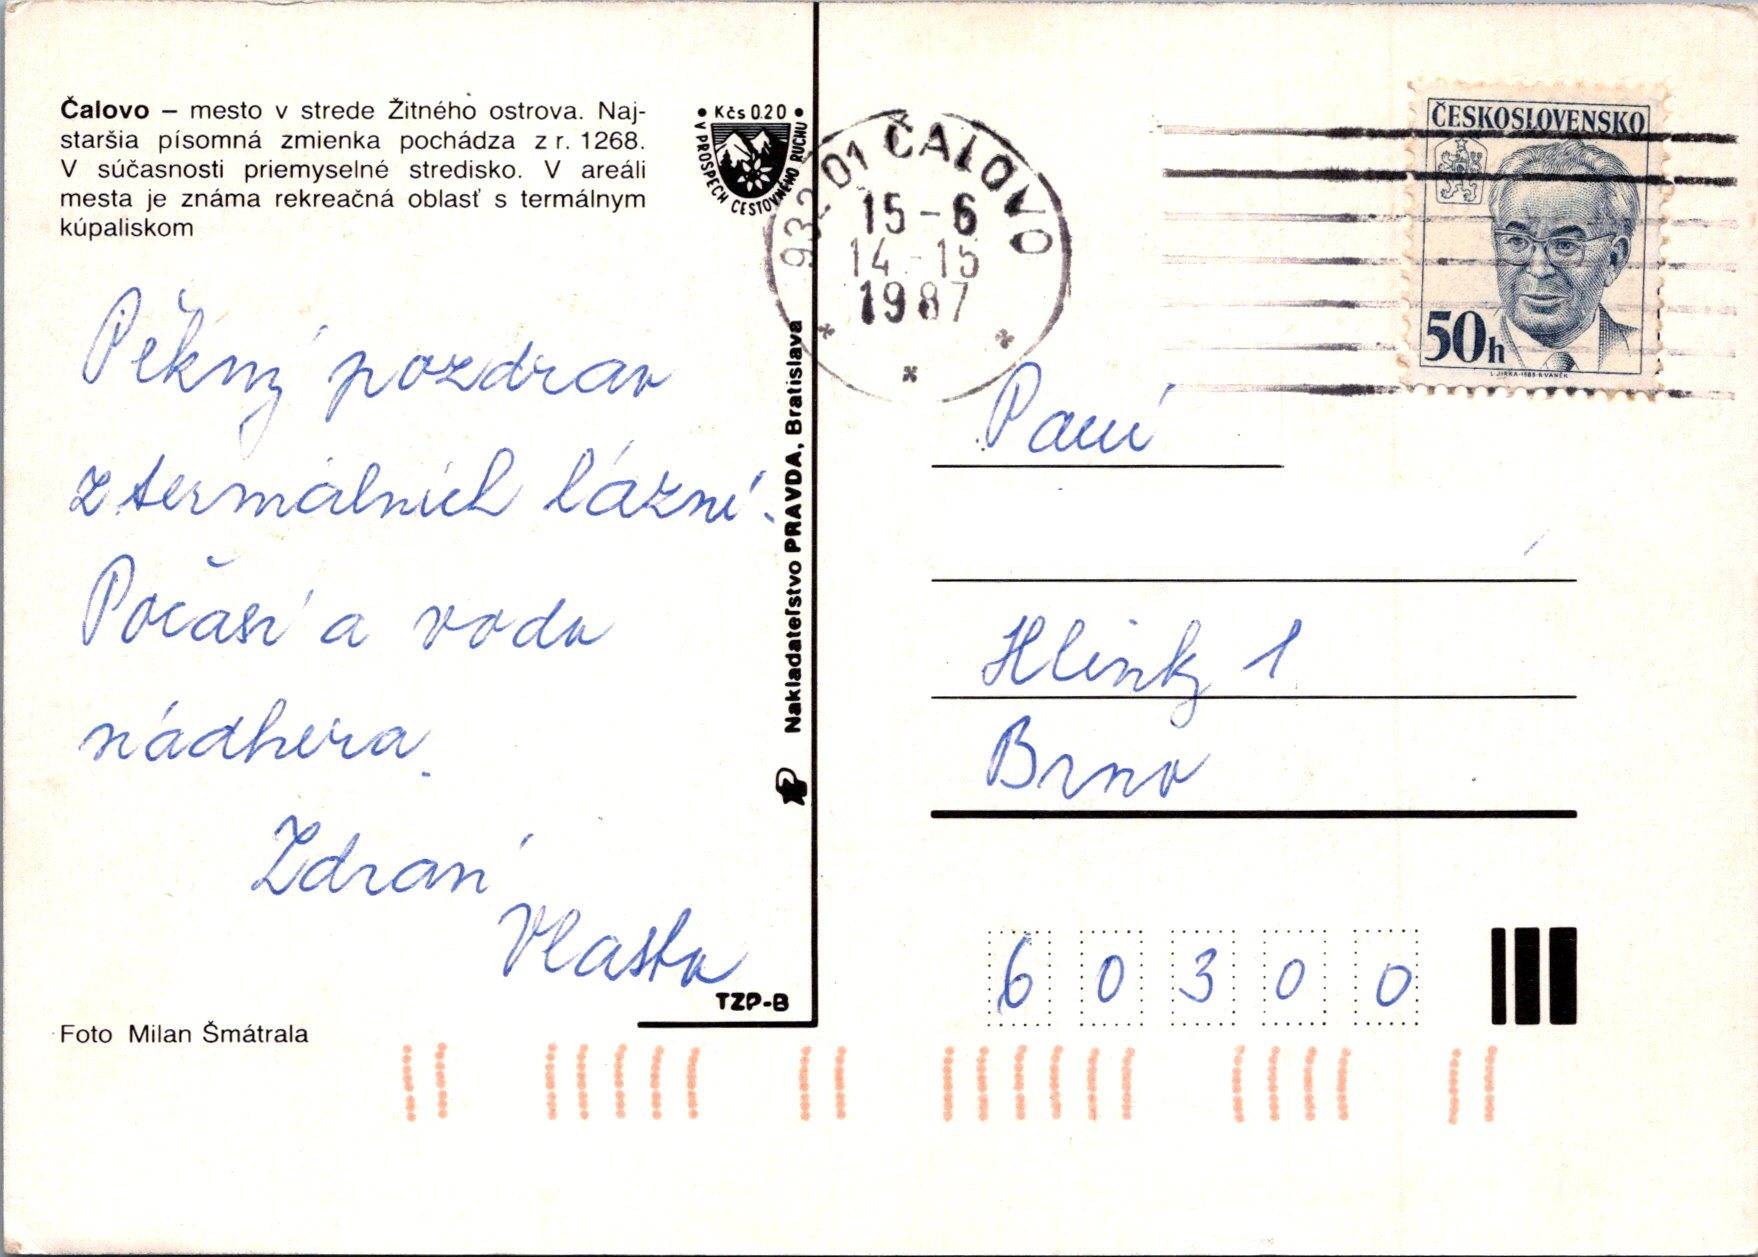 Čalovo – mesto v strede Žitného ostrova. Naj-
staršia písomná zmienka pochádza z r. 1268.
V súčasnosti priemyselné stredisko. V areáli
mesta je známa rekreačná oblasť s termálnym
kúpaliskom
• Kčs 0.20 •
V PROSPECH CESTOVNÉHO RUCHU
932 01 ČALOVO
15-6
14-15
1987
ČESKOSLOVENSKO
50h
L.JIRKA-1985-R.VANĚK
Pěkný pozdrav
z termálních lázní.
Počasí a voda
nádhera.
Zdraví
Vlasta
Nakladateľstvo PRAVDA, Bratislava
TZP-B
Foto Milan Šmátrala
Paní
Hlinky 1
Brno
60300